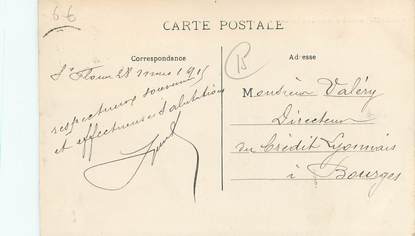 66
CARTE POSTALE
Correspondance
Adresse
B
St Flour 28 mars 191
respectueux souvenir
et affectueuses salutations
Monsieur Valéry
Directeur
du Crédit Lyonnais
à Bourges